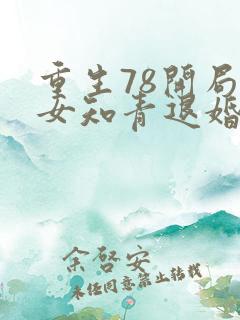 重生78开局
女知青退婚
余啓安
未经同意禁止转载